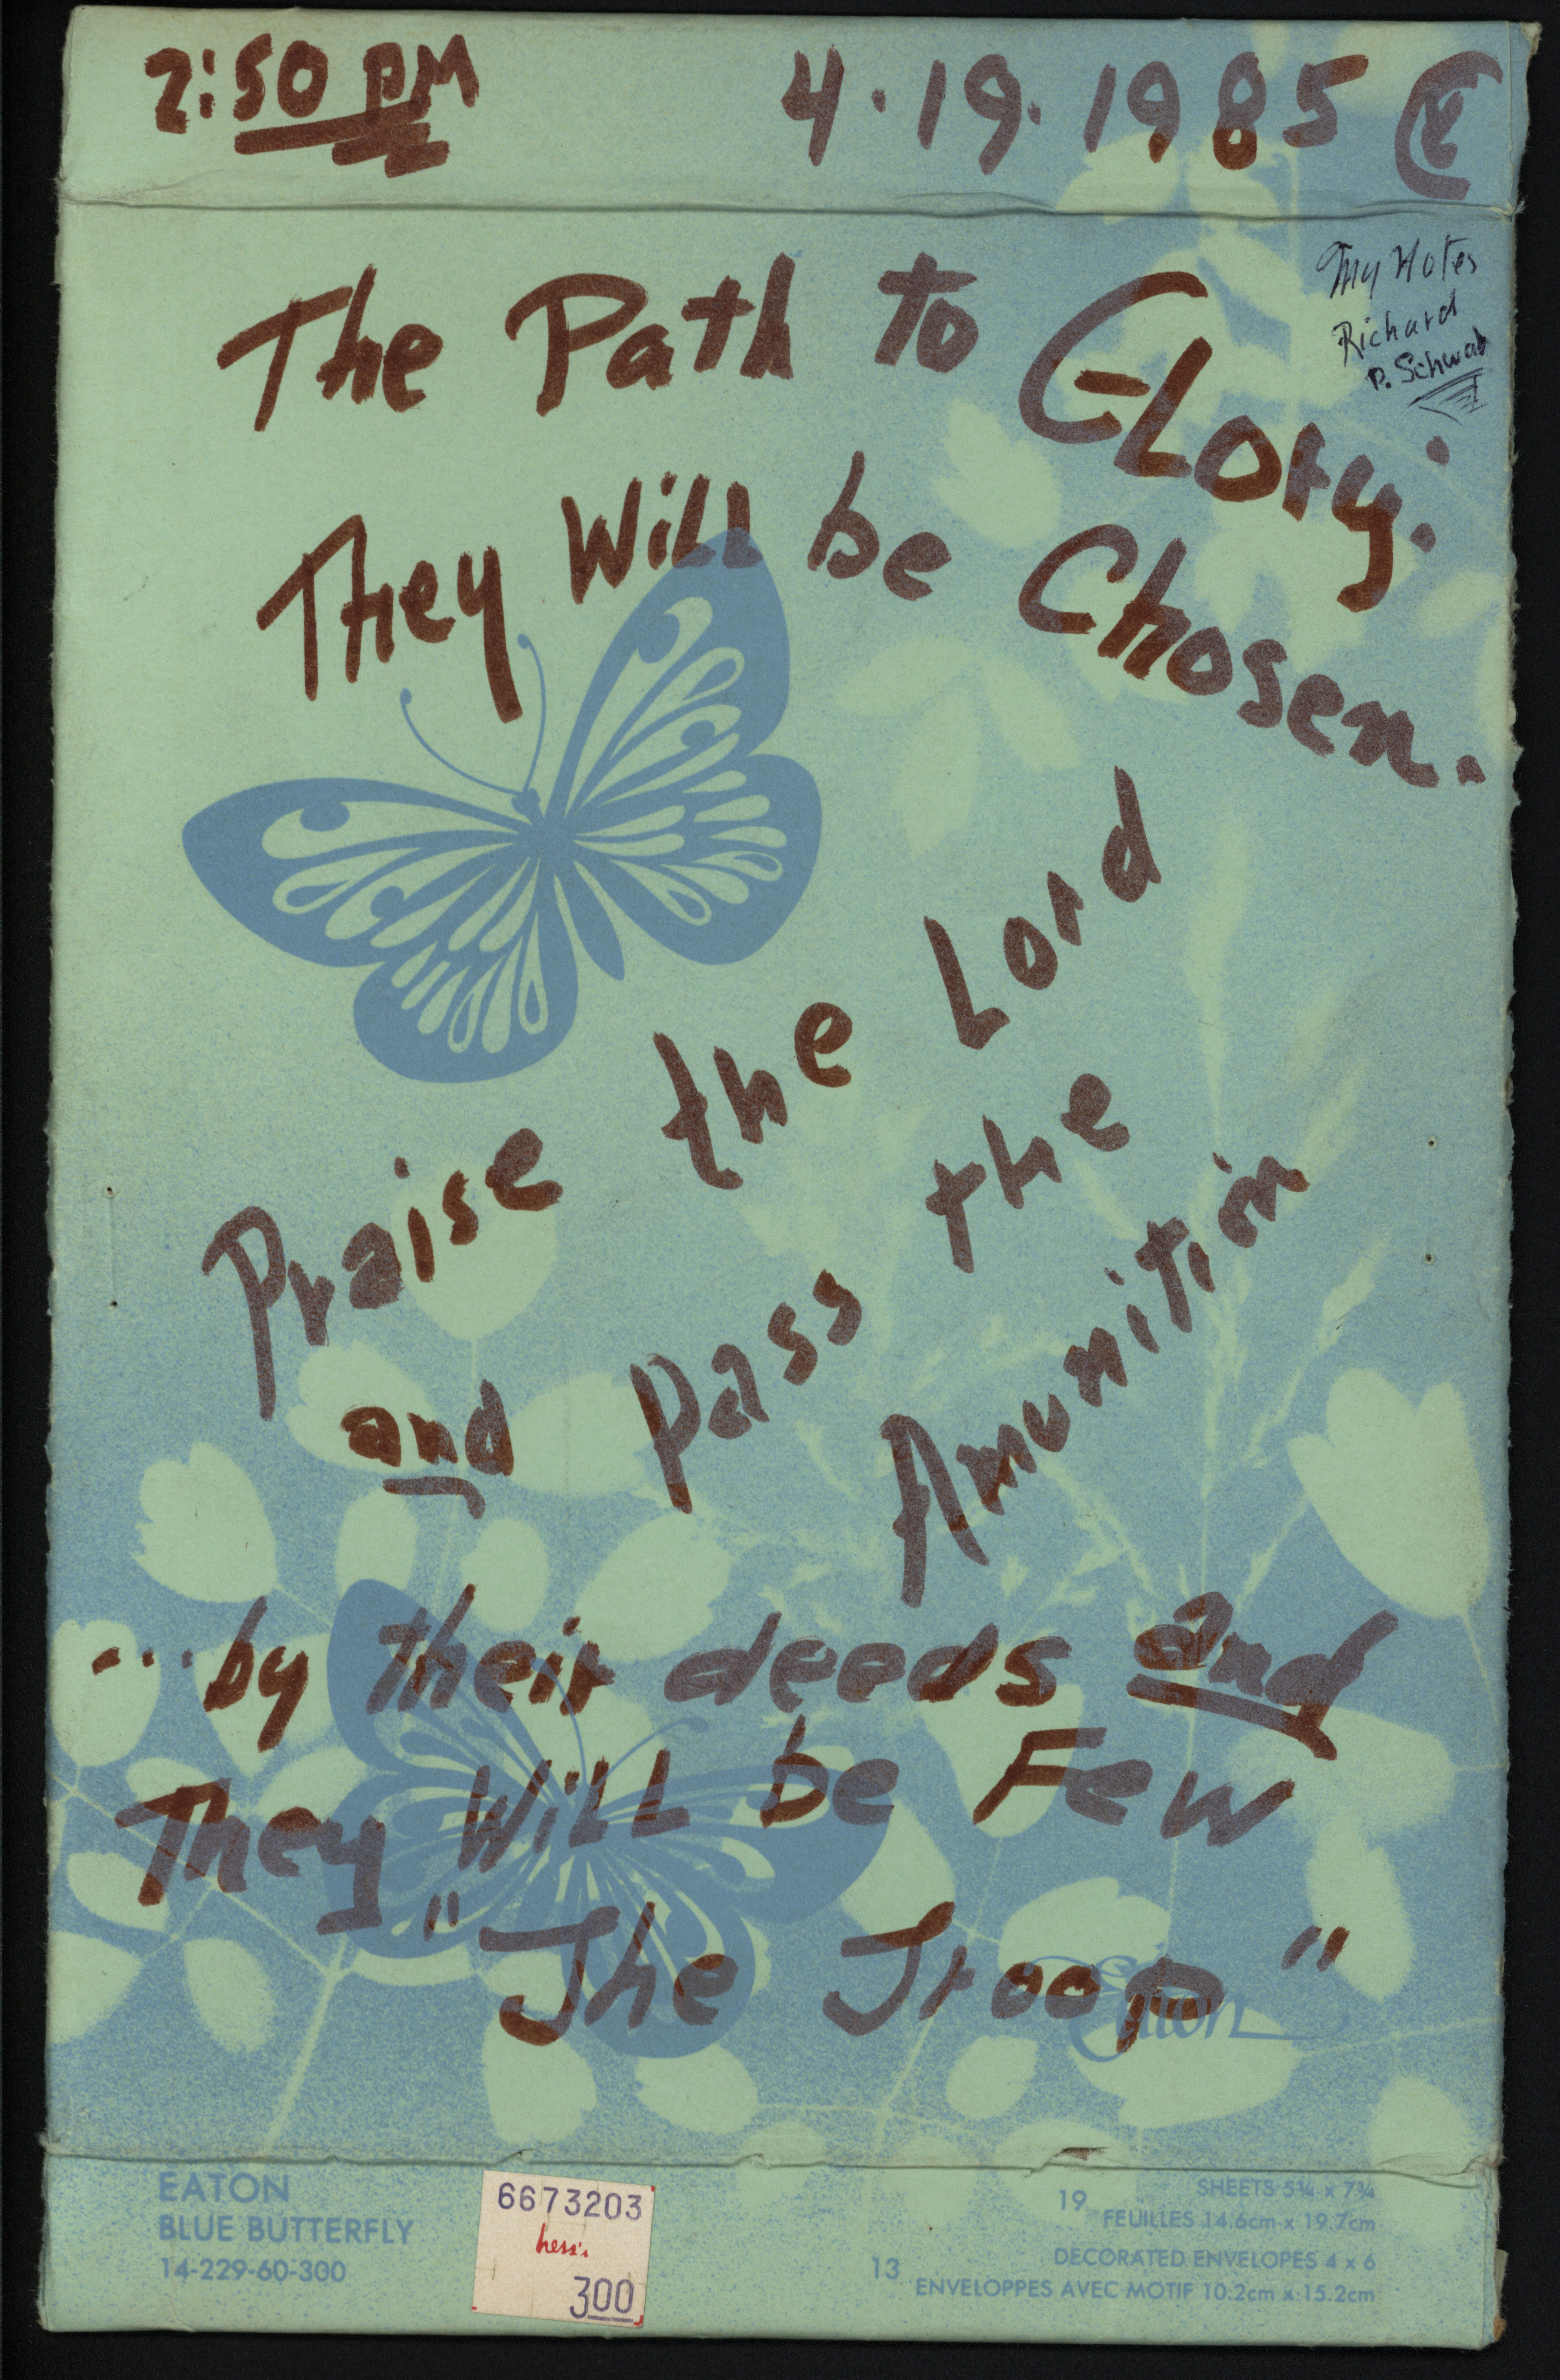 2:50 PM 4.19.1985
My Notes
Richard
P. Schwab
The Path to Glory:
They Will be Chosen.
Praise the Lord
and pass the
Amunition
...by their deeds and
They Will be Few
"The Troop"
Eaton
EATON
BLUE BUTTERFLY
14-229-60-300
6673203
hess's
300
19 SHEETS 5¾ x 7¾
FEUILLES 14.6cm x 19.7cm
13 DECORATED ENVELOPES 4 x 6
ENVELOPPES AVEC MOTIF 10.2cm x 15.2cm